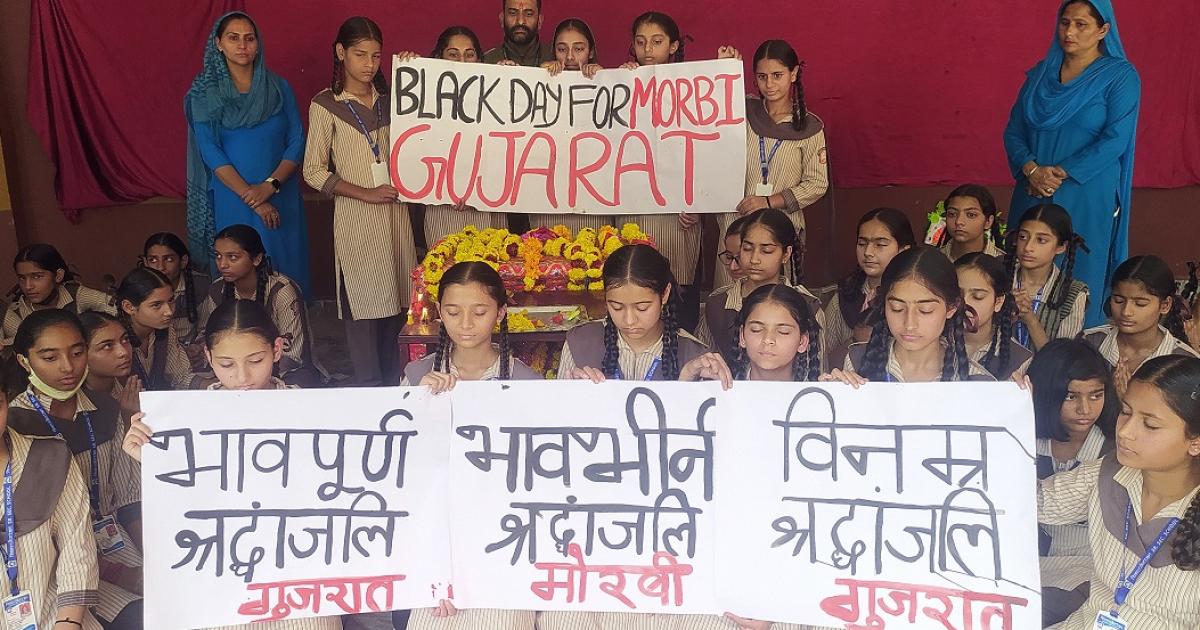 BLACK DAY FOR MORBI
GUJARAT
भावपूर्ण
श्रद्धांजलि
गुजरात
भावभीर्न
श्रद्धांजलि
मोरबी
विनम्र
श्रद्धांजलि
गुजरात